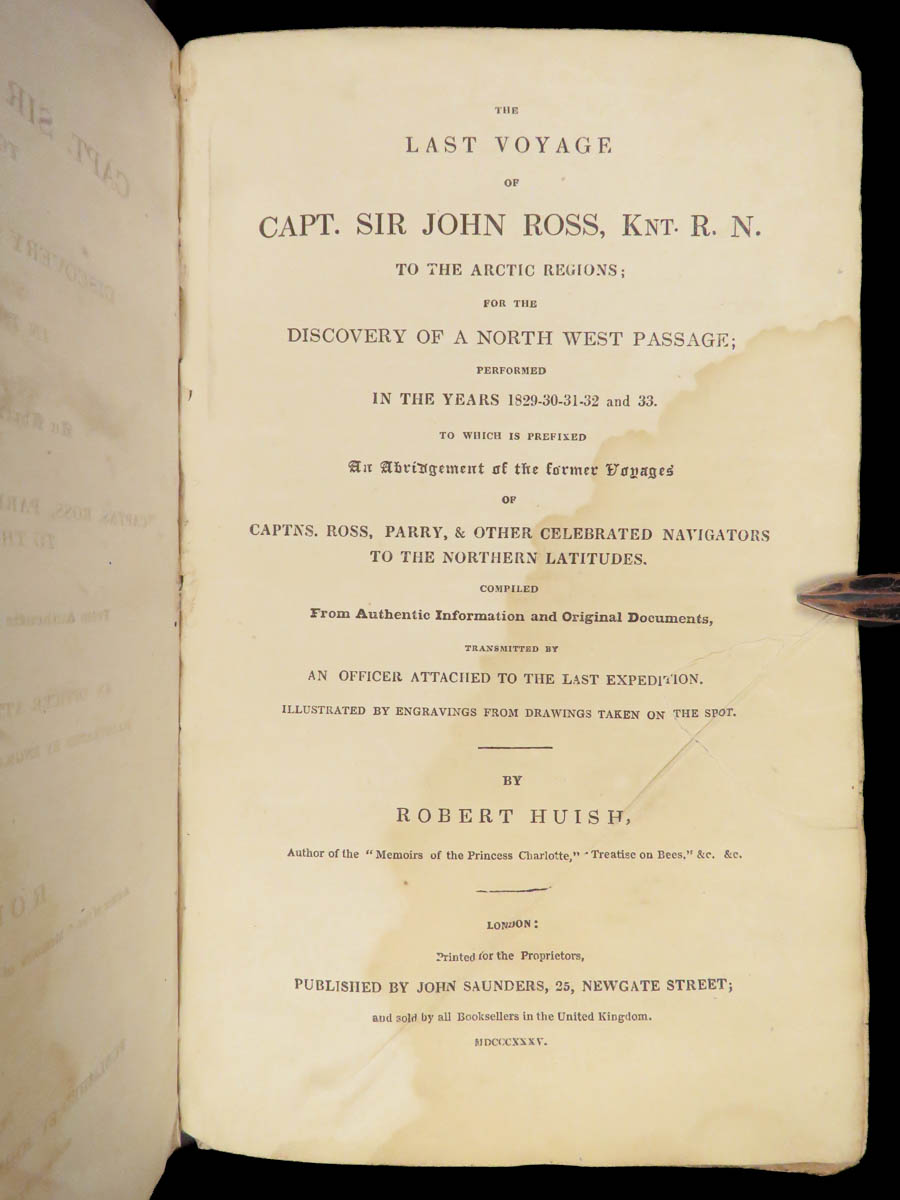 THE
LAST VOYAGE
OF
CAPT. SIR JOHN ROSS, KNT. R. N.
TO THE ARCTIC REGIONS;
FOR THE
DISCOVERY OF A NORTH WEST PASSAGE;
PERFORMED
IN THE YEARS 1829-30-31-32 and 33.
TO WHICH IS PREFIXED
An Abridgement of the former Voyages
OF
CAPTNS. ROSS, PARRY, & OTHER CELEBRATED NAVIGATORS
TO THE NORTHERN LATITUDES.
COMPILED
From Authentic Information and Original Documents,
TRANSMITTED BY
AN OFFICER ATTACHED TO THE LAST EXPEDITION.
ILLUSTRATED BY ENGRAVINGS FROM DRAWINGS TAKEN ON THE SPOT.
BY
ROBERT HUISH,
Author of the "Memoirs of the Princess Charlotte," "Treatise on Bees," &c. &c.
LONDON:
Printed for the Proprietors,
PUBLISHED BY JOHN SAUNDERS, 25, NEWGATE STREET;
and sold by all Booksellers in the United Kingdom.
MDCCCXXXV.